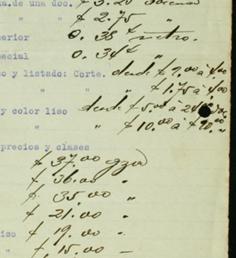 a.de una doc. $ 3.20 docena
" $ 2.75 "
erior 0.38 metro.
pecial 0.34 "
o y listado: Corte. desde $ 2,00 à 4,00
" " $ 1.75 à
y color liso desde $ 5,00 à
" " $ 10.00 à $
precios y clases
$ 37.00
$ 36.00 "
$ 35.00 "
$ 21.00 "
iso $ 19.00 "
" $ 15.00 —